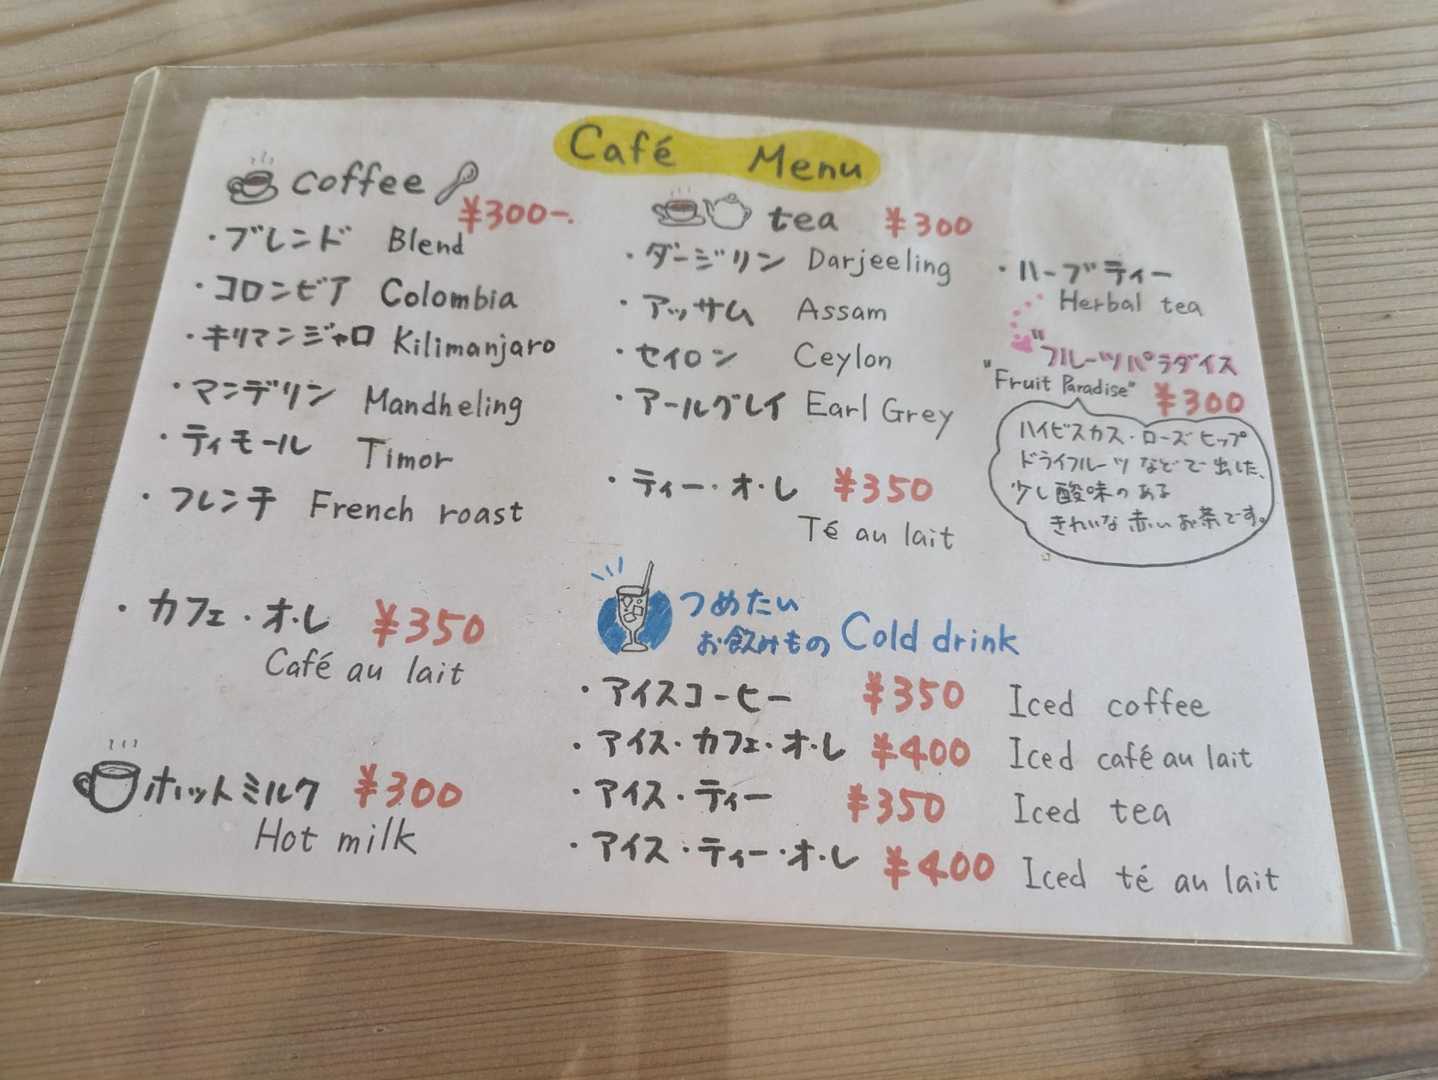 Café Menu
coffee
¥300-.
・ブレンド Blend
・コロンビア Colombia
・キリマンジャロ Kilimanjaro
・マンデリン Mandheling
・ティモール Timor
・フレンチ French roast
・カフェ・オ・レ ¥350
Café au lait
ホットミルク ¥300
Hot milk
tea ¥300
・ダージリン Darjeeling
・アッサム Assam
・セイロン Ceylon
・アールグレイ Earl Grey
・ティー・オ・レ ¥350
Té au lait
・ハーブティー
Herbal tea
"フルーツパラダイス
"Fruit Paradise" ¥300
ハイビスカス・ローズヒップ
ドライフルーツなどで出した、
少し酸味のある
きれいな赤いお茶です。
つめたい
お飲みもの Cold drink
・アイスコーヒー ¥350 Iced coffee
・アイス・カフェ・オ・レ ¥400 Iced café au lait
・アイス・ティー ¥350 Iced tea
・アイス・ティー・オ・レ ¥400 Iced té au lait